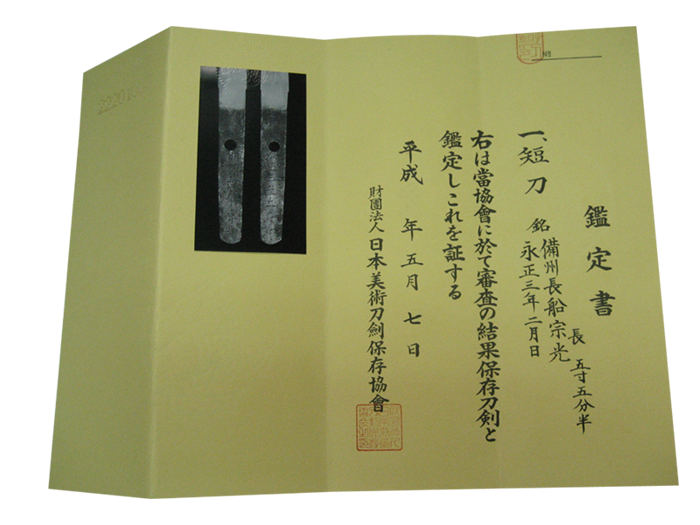 鑑定書
一、短刀 銘 備州長船宗光
永正三年二月日
長 五寸五分半
右は當協會に於て審査の結果保存刀剣と
鑑定しこれを証する
平成 年五月七日
財團法人日本美術刀劍保存協會